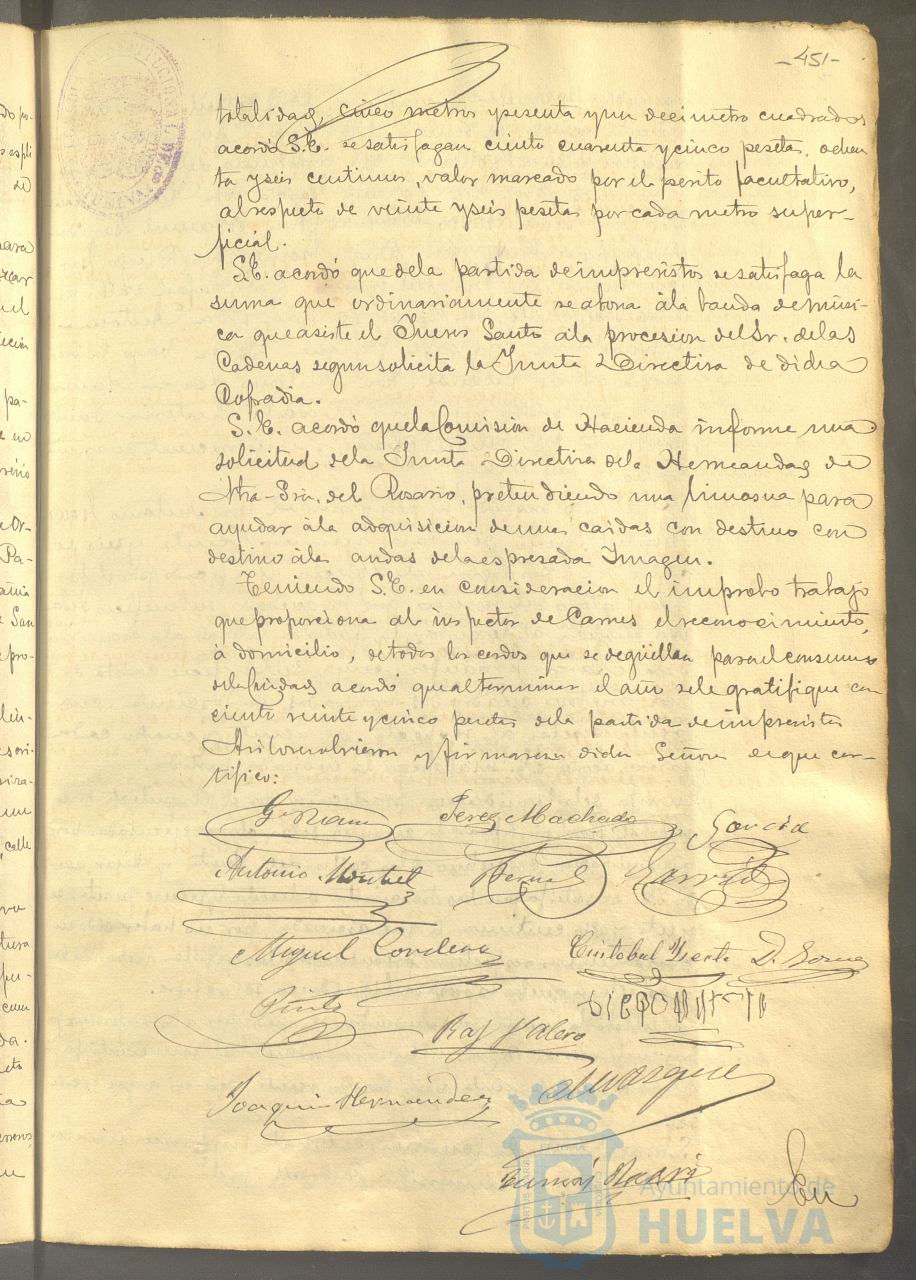 -451-
totalidad, cinco metros y sesenta y un decimetro cuadrados
acordó S.E. se satisfagan ciento cuarenta y cinco pesetas, ochen
ta y seis centimos, valor marcado por el perito facultativo,
al respeto de veinte y seis pesetas por cada metro super-
ficial.
S.E. acordó que de la partida de imprevistos se satisfaga la
suma que ordinariamente se abona á la banda de músi-
ca que asiste el Jueves Santo á la procesion del Sr. de las
Cadenas segun solicita la Junta Directiva de dicha
Cofradia.
S.E. acordó que la Comision de Hacienda informe una
solicitud de la Junta Directiva de la Hermandad de
Ntra. Sra. del Rosario, pretendiendo una limosna para
ayudar á la adquisicion de unas caidas con destino con
destino á las andas de la espresada Imagen.
Teniendo S.E. en consideracion el improbo trabajo
que proporciona al inspector de Carnes el reconocimiento,
á domicilio, de todos los cerdos que se degüellan para el consumo
de la Ciudad acordó que al terminar el año se le gratifique con
ciento veinte y cinco pesetas de la partida de imprevistos
Asi lo acordaron y firmaron dichos Señores de que cer-
tifico:
Perez Machado
Garcia
Antonio
Bernal
Garrido
Miguel Cordero
Cristobal
D.
Pinto
Raf Valero
Joaquin Hernandez
El Marques
En
Ayuntamiento de
HUELVA